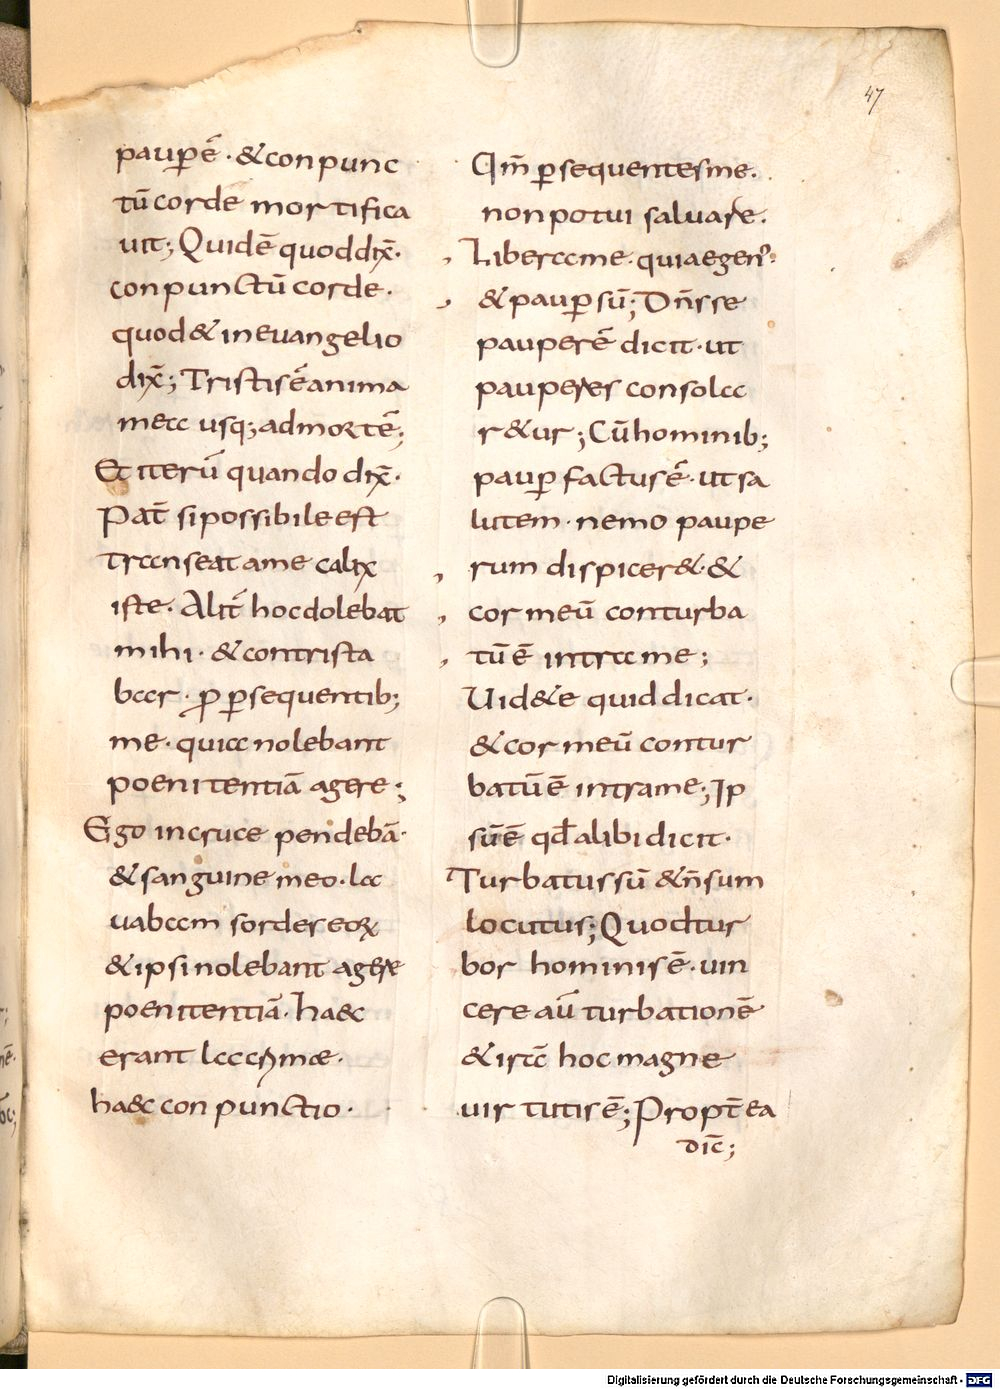 47
paup̲erē · & conpunc
tū corde mortifica
uit; Quidē quod dix̄ ·
conpunctū corde ·
quod & in euangelio
dix̄; Tristis ē anima
mea usq; ad mortē;
Et iterū quando dix̄ ·
Pat̄ si possibile est
transeat a me calix
iste · Alit̄ hoc dolebat
mihi · & contrista
bar · ꝓ ꝑsequentib;
me · quia nolebant
poenitentiā agere;
Ego in cruce pendebā ·
& sanguine meo · la
uabam sordes eoꝝ
& ipsi nolebant agere
poenitentiā · haec
erant lacrimae ·
haec conpunctio ·
Qm̄ ꝑsequentes me ·
non potui saluare ·
Libera me · quia egen᾽ ·
& pauꝑ sū; Dn̄s se
pauperē dicit · ut
pauperes consola
r&ur; Cū hominib;
pauꝑ factus ē · ut sa
lutem · nemo paupe
rum dispicer& · &
cor meū conturba
tū ē intra me;
Uid&e quid dicat ·
& cor meū contur
batū ē intra me; Ip
sū ē qd̄ alibi dicit ·
Turbatus sū & n̄ sum
locutus; Quod tur
bor hominis ē · uin
cere aū turbationē
& irā hoc magne
uirtutis ē; Propt̄ea
dic̄;
Digitalisierung gefördert durch die Deutsche Forschungsgemeinschaft - DFG